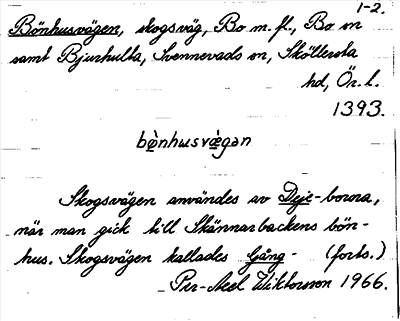 1-2.
Bönhusvägen, skogsväg, Bo m. fl., Bo sn
samt Bjurhulta, Svennevads sn, Sköllersta
hd, Ör. l.
1393.
bönhusvägan
Skogsvägen användes av Deje-borna,
när man gick till Skännarbackens bön-
hus. Skogsvägen kallades Gång- (forts.)
Per-Axel Wiktorsson 1966.